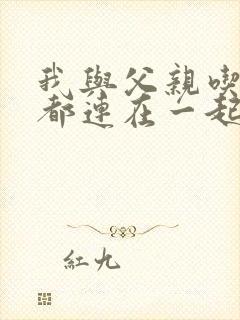 我與父親喫
都連在一起
紅九